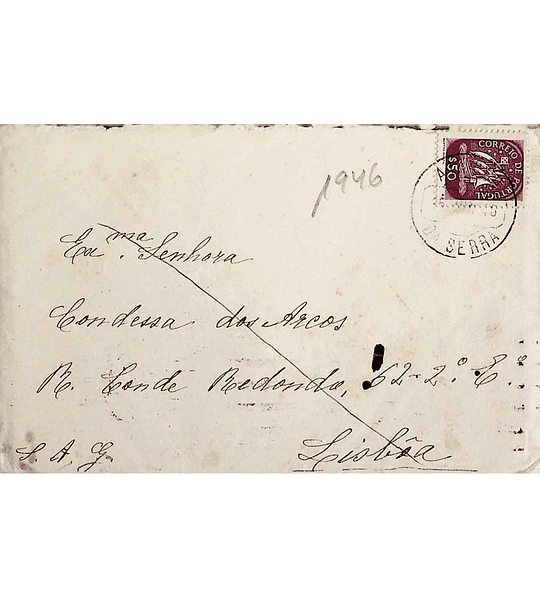 1946
CORREIO DE PORTUGAL
$50
DA SERRA
Exma. Senhora
Condessa dos Arcos
R. Conde Redondo, 62-2º. E.
Lisbôa
S. A. G.